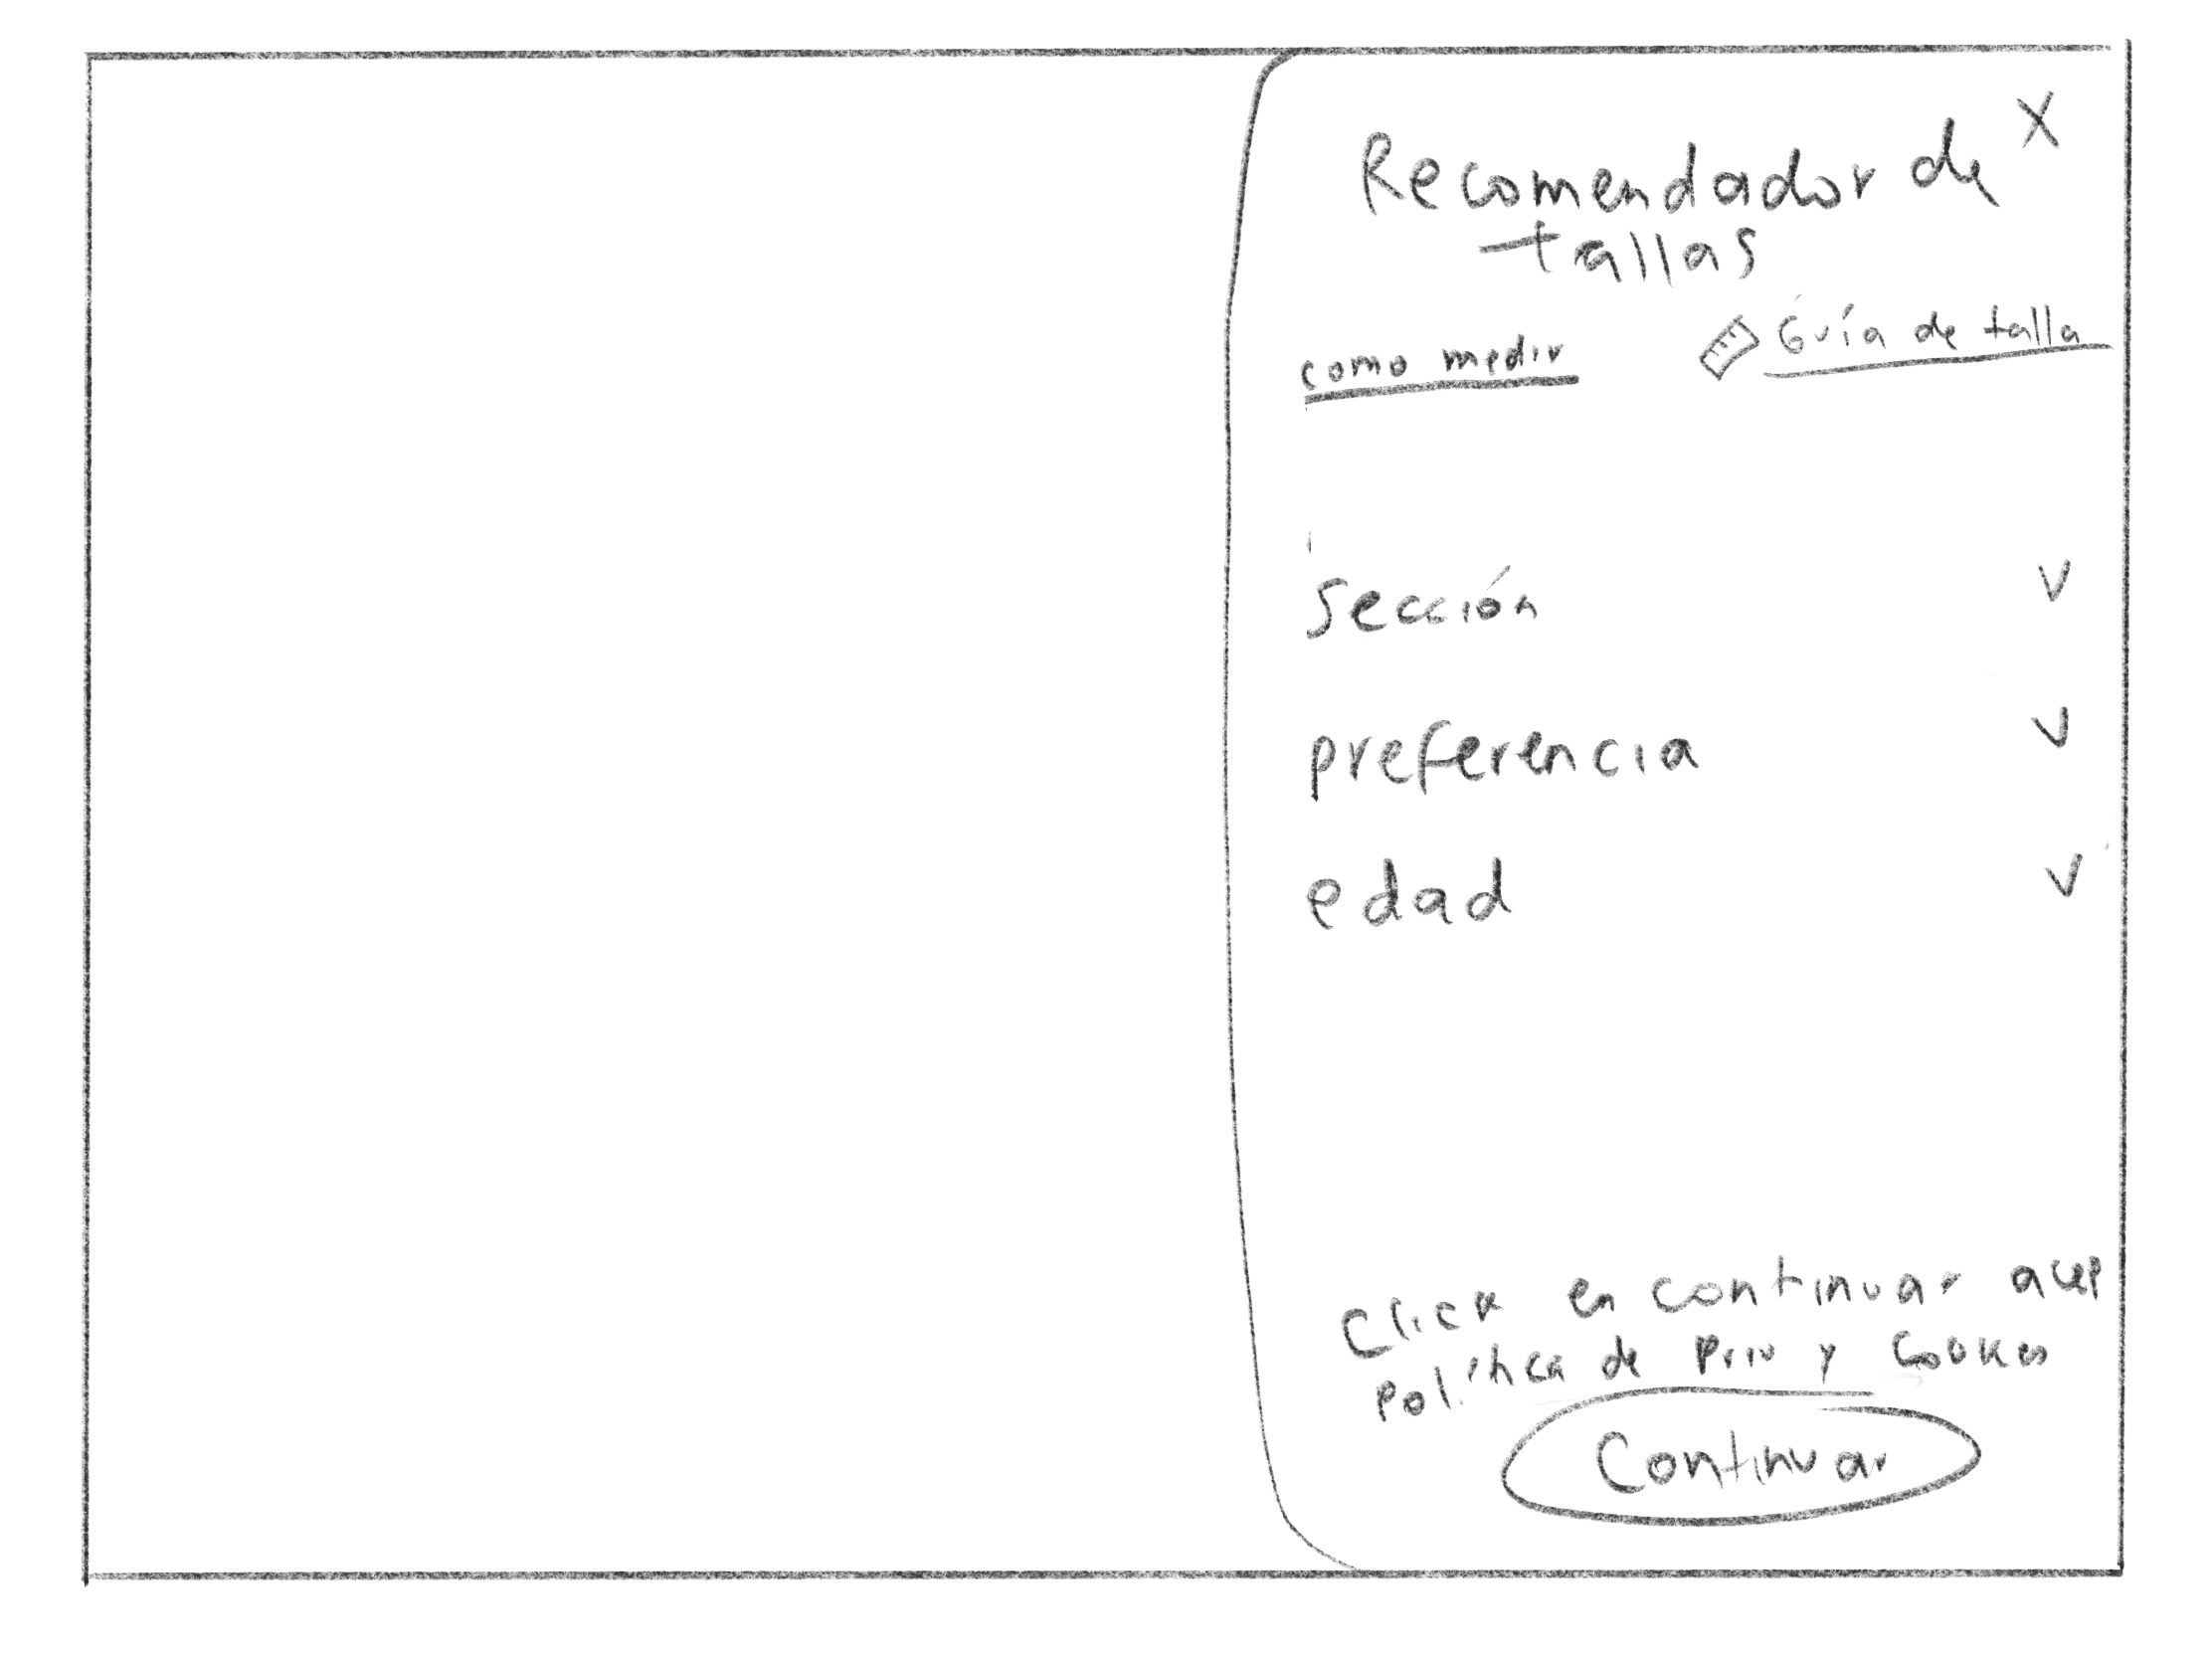 X
Recomendador de
tallas
como medir
Guía de talla
Sección
preferencia
edad
Click en continuar acep
Política de Priv y Cookies
Continuar